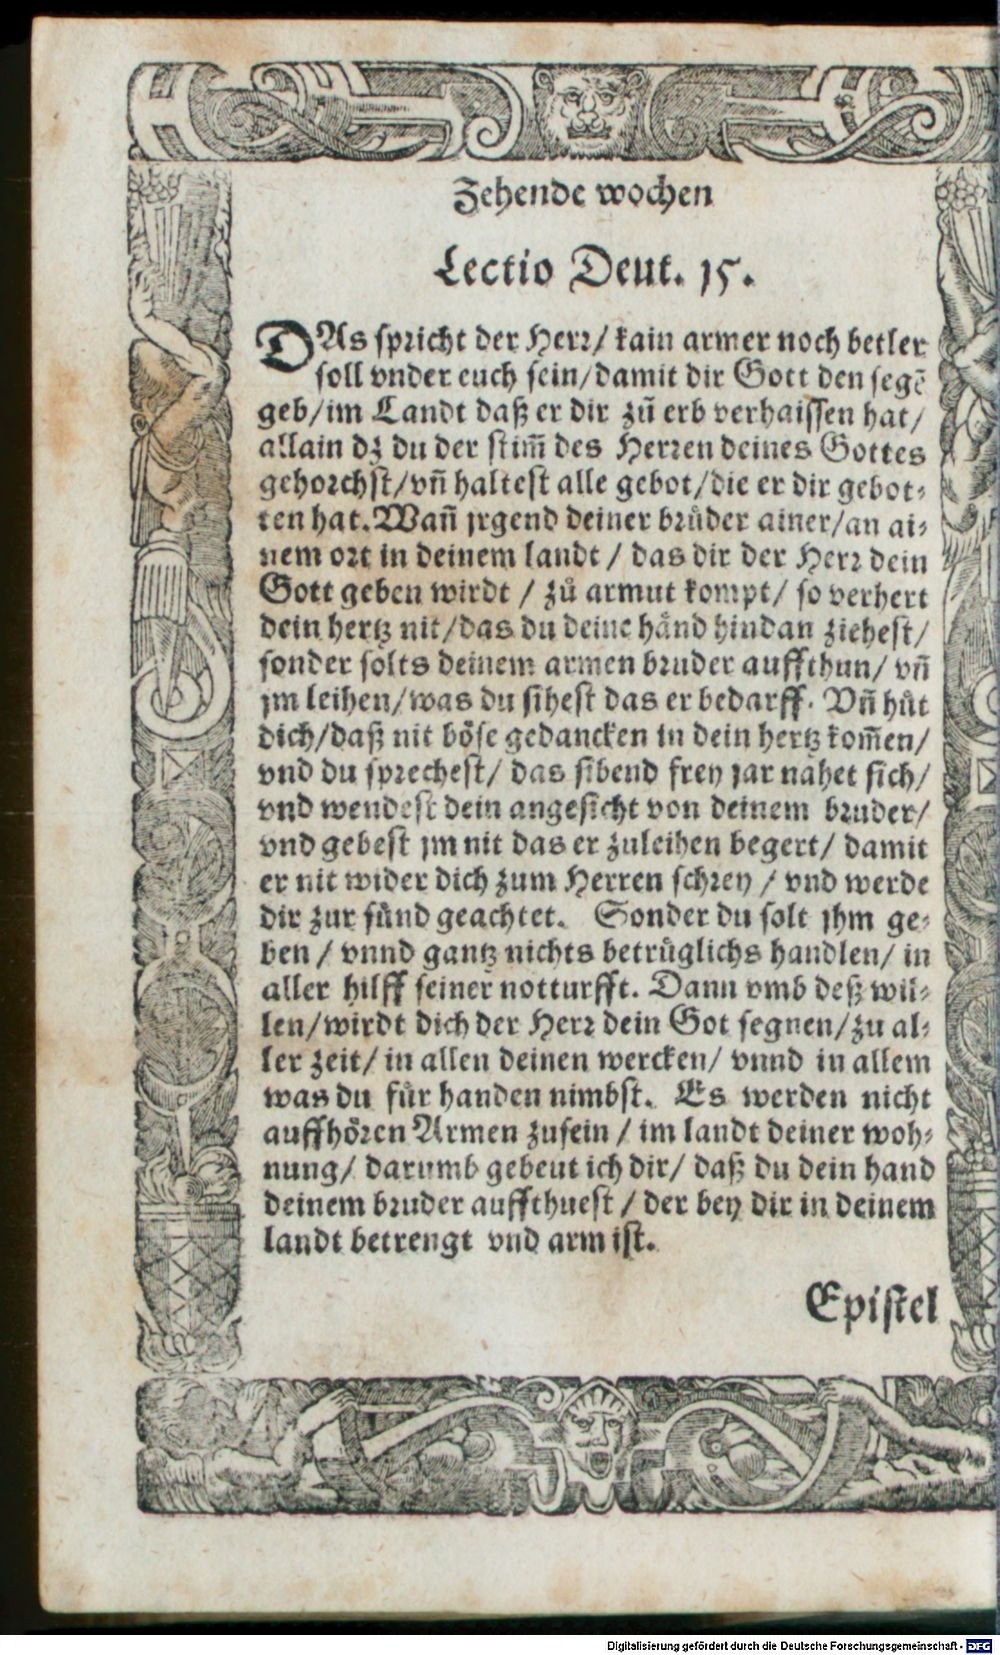 Zehende wochen
Lectio Deut. 15.
DAs spricht der Herr/ kain armer noch betler
soll vnder euch sein/damit dir Gott den segē
geb/im Landt daß er dir zů erb verhaissen hat/
allain dz du der stim̃ des Herren deines Gottes
gehorchst/vñ haltest alle gebot/die er dir gebot-
ten hat. Wañ jrgend deiner brůder ainer/an ai-
nem ort in deinem landt / das dir der Herr dein
Gott geben wirdt / zů armut kompt/ so verhert
dein hertz nit/das du deine hånd hindan ziehest/
sonder solts deinem armen bruder auffthun/ vñ
jm leihen/was du sihest das er bedarff. Vñ hůt
dich/daß nit böse gedancken in dein hertz kom̃en/
vnd du sprechest/ das sibend frey jar nahet sich/
vnd wendest dein angesicht von deinem bruder/
vnd gebest jm nit das er zuleihen begert/ damit
er nit wider dich zum Herren schrey / vnd werde
dir zur sünd geachtet. Sonder du solt jhm ge-
ben / vnnd gantz nichts betrüglichs handlen/ in
aller hilff seiner notturfft. Dann vmb deß wil-
len/wirdt dich der Herr dein Got segnen/zu al-
ler zeit/ in allen deinen wercken/ vnnd in allem
was du für handen nimbst. Es werden nicht
auffhören Armen zusein / im landt deiner woh-
nung/ darumb gebeut ich dir/ daß du dein hand
deinem bruder auffthuest / der bey dir in deinem
landt betrengt vnd arm ist.
Epistel
Digitalisierung gefördert durch die Deutsche Forschungsgemeinschaft - DFG